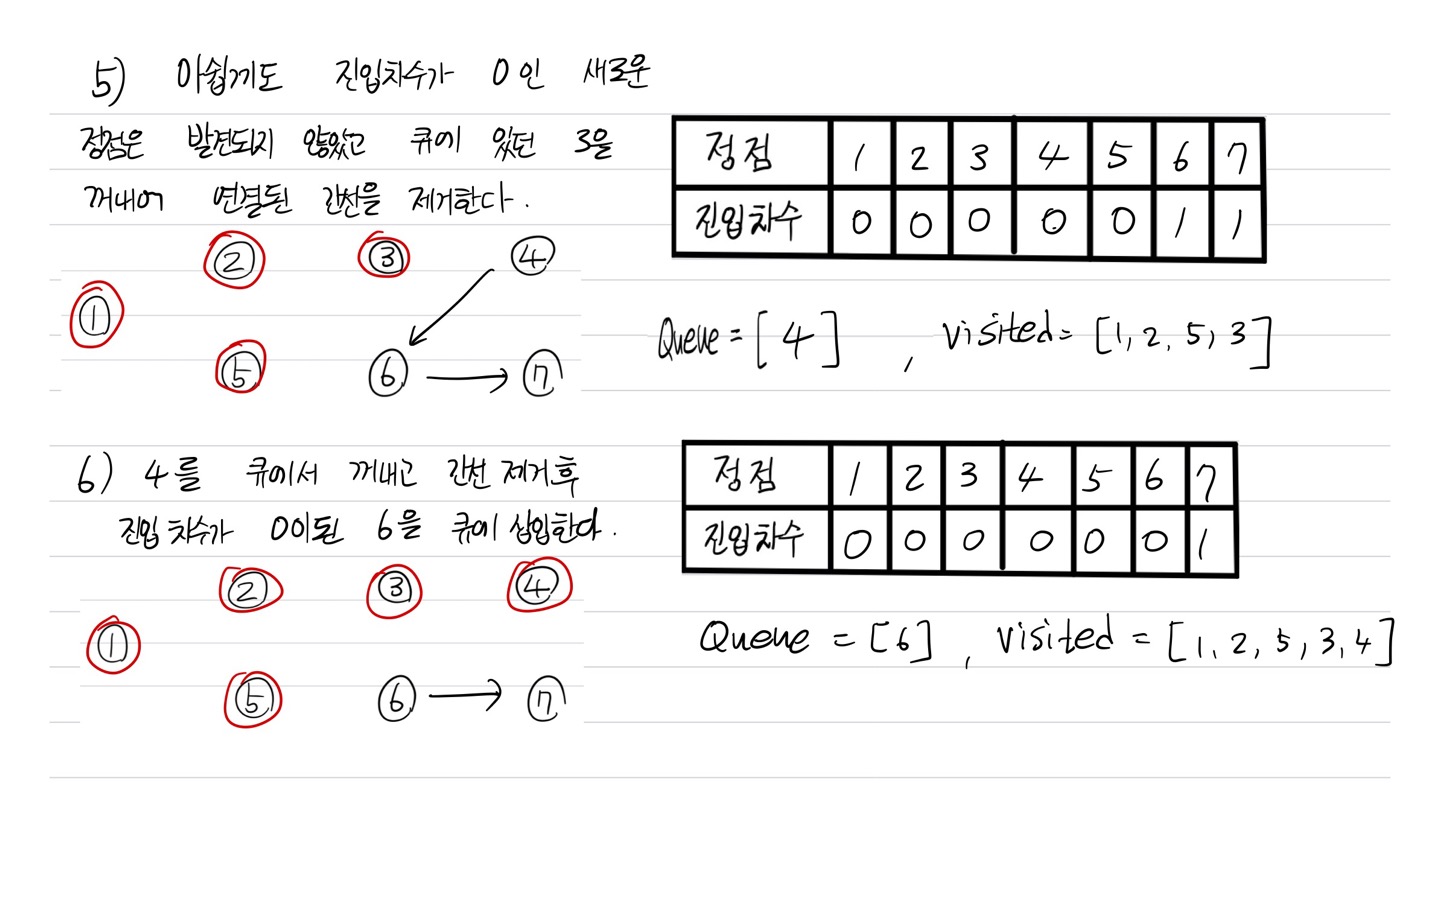 5) 아쉽게도 진입차수가 0인 새로운
정점은 발견되지 않았고 큐에 있던 3을
꺼내어 연결된 간선을 제거한다.
② ③ ④
①
⑤ ⑥ ⑦
정점 1 2 3 4 5 6 7
진입차수 0 0 0 0 0 1 1
Queue = [4] , visited = [1, 2, 5, 3]
6) 4를 큐에서 꺼내고 간선 제거 후
진입 차수가 0이 된 6을 큐에 삽입한다.
② ③ ④
①
⑤ ⑥ ⑦
정점 1 2 3 4 5 6 7
진입차수 0 0 0 0 0 0 1
Queue = [6] , visited = [1, 2, 5, 3, 4]